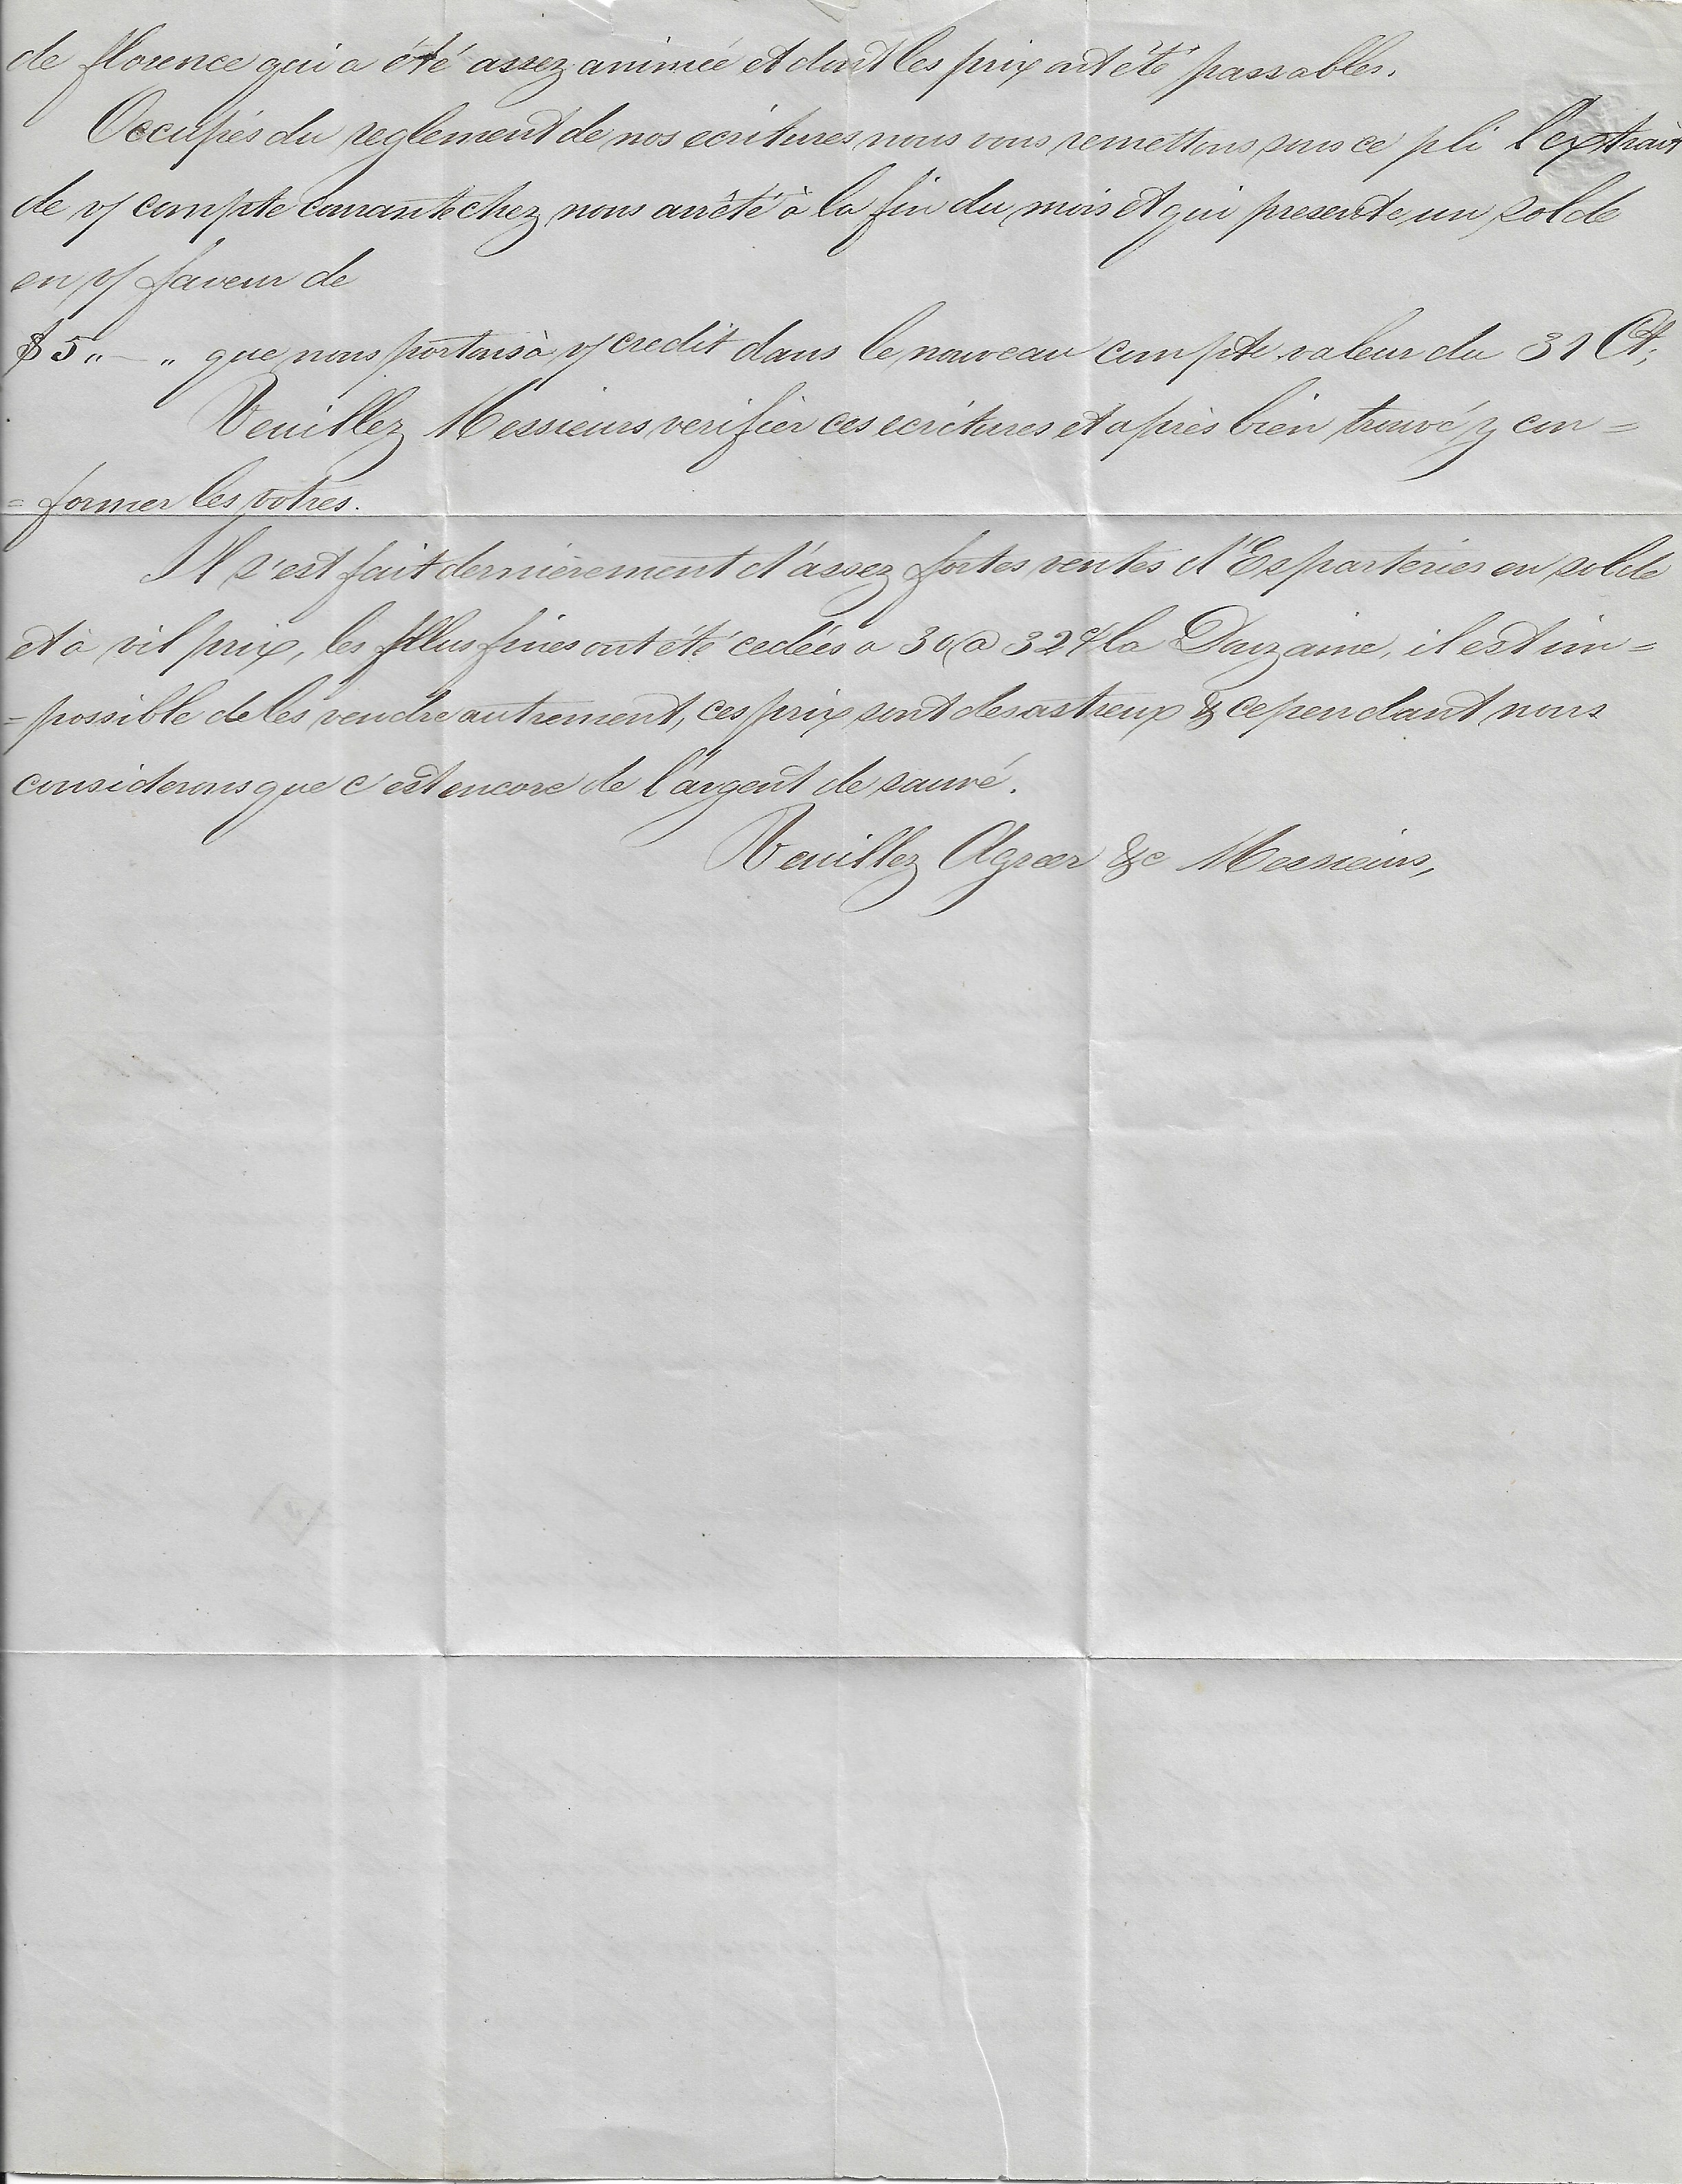 de florence qui a été assez animée et dont les prix ont été passables.
Occupés du reglement de nos ecritures nous vous remettons sous ce pli l'extrait
de v/ compte courant chez nous arrêté à la fin du mois et qui presente un solde
en v/ faveur de
$ 5 „ — „ que nous portons à v/ credit dans le nouveau compte valeur du 31 Ct;
Veuillez Messieurs verifier ces ecritures et après bien trouvé y con =
= former les votres.
Il s'est fait dernièrement d'assez fortes ventes d'Esparteries en solde
et à vil prix, les plus fines ont été cedées a 30 @ 32 ¢ la Douzaine, il est im =
= possible de les vendre autrement, ces prix sont desastreux & cependant nous
considerons que c'est encore de l'argent de sauvé.
Veuillez Agreer &c Messieurs,